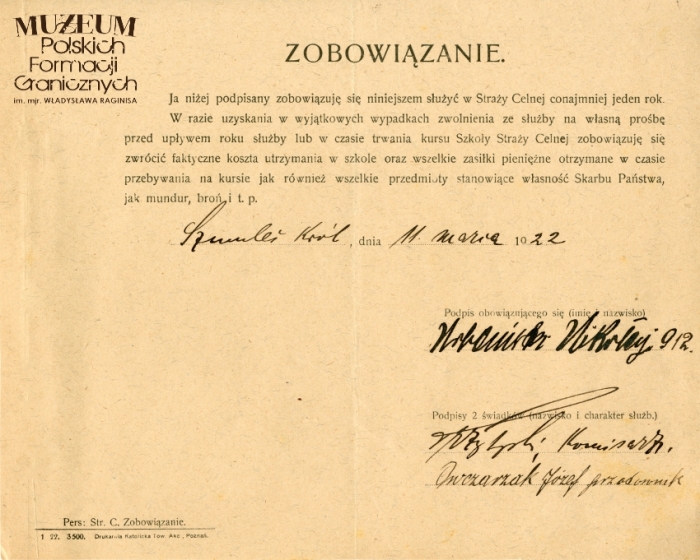 MUZEUM
Polskich
Formacji
Granicznych
im. mjr. WŁADYSŁAWA RAGINISA
ZOBOWIĄZANIE.
Ja niżej podpisany zobowiązuję się niniejszem służyć w Straży Celnej conajmniej jeden rok.
W razie uzyskania w wyjątkowych wypadkach zwolnienia ze służby na własną prośbę
przed upływem roku służby lub w czasie trwania kursu Szkoły Straży Celnej zobowiązuję się
zwrócić faktyczne koszta utrzymania w szkole oraz wszelkie zasiłki pieniężne otrzymane w czasie
przebywania na kursie jak również wszelkie przedmioty stanowiące własność Skarbu Państwa,
jak mundur, broń i t. p.
Król, dnia 11. marca 1922
Podpis obowiązującego się (imię i nazwisko)
Mikołaj 912.
Podpisy 2 świadków (nazwisko i charakter służb.)
Komisarz.
Owczarzak Józef przodownik
Pers: Str. C. Zobowiązanie.
1 22. 3500. Drukarnia Katolicka Tow. Akc., Poznań.